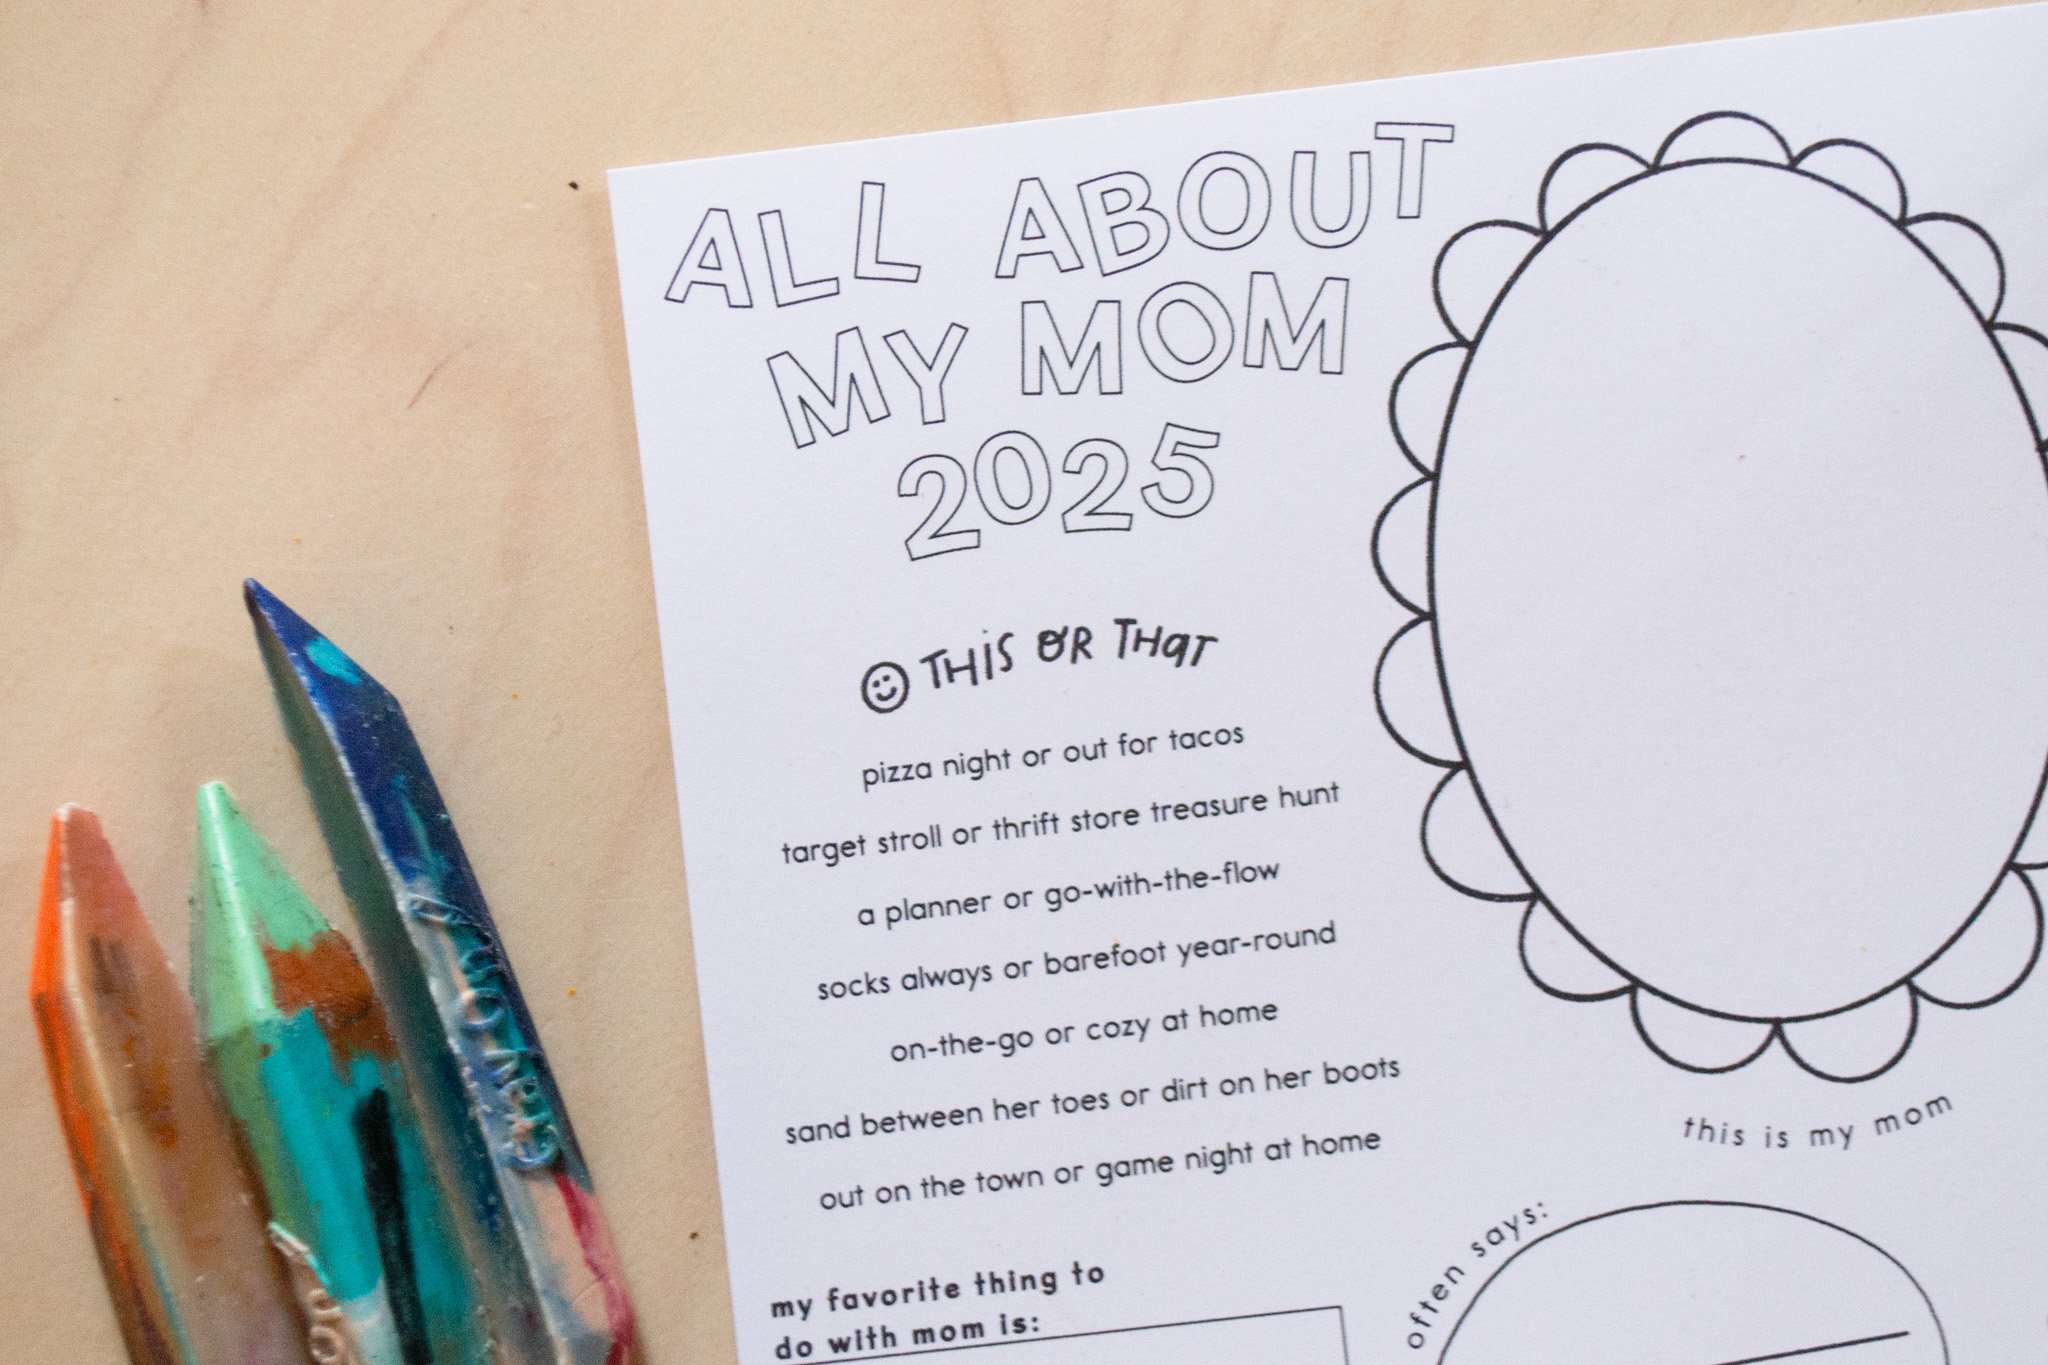 ALL ABOUT
MY MOM
2025
THIS OR THAT
pizza night or out for tacos
target stroll or thrift store treasure hunt
a planner or go-with-the-flow
socks always or barefoot year-round
on-the-go or cozy at home
sand between her toes or dirt on her boots
out on the town or game night at home
my favorite thing to
do with mom is:
this is my mom
often says: